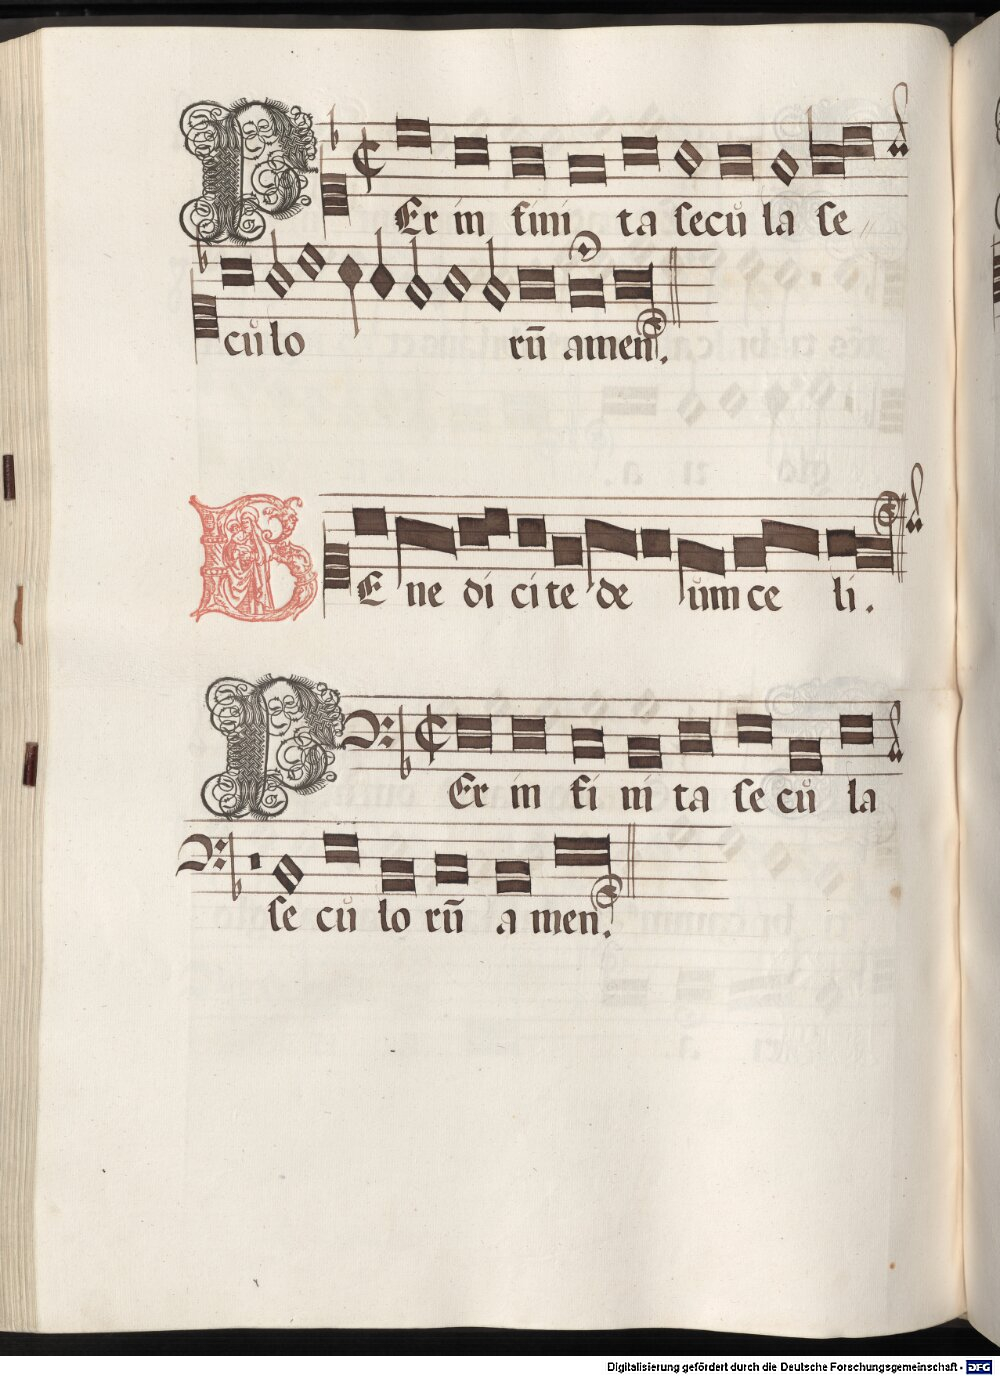 PEr in fini ta secŭ la se
cŭ lo rū amen.
BE ne di ci te de ŭm ce li.
PEr in fi ni ta se cŭ la
se cŭ lo rū a men.
Digitalisierung gefördert durch die Deutsche Forschungsgemeinschaft - DFG